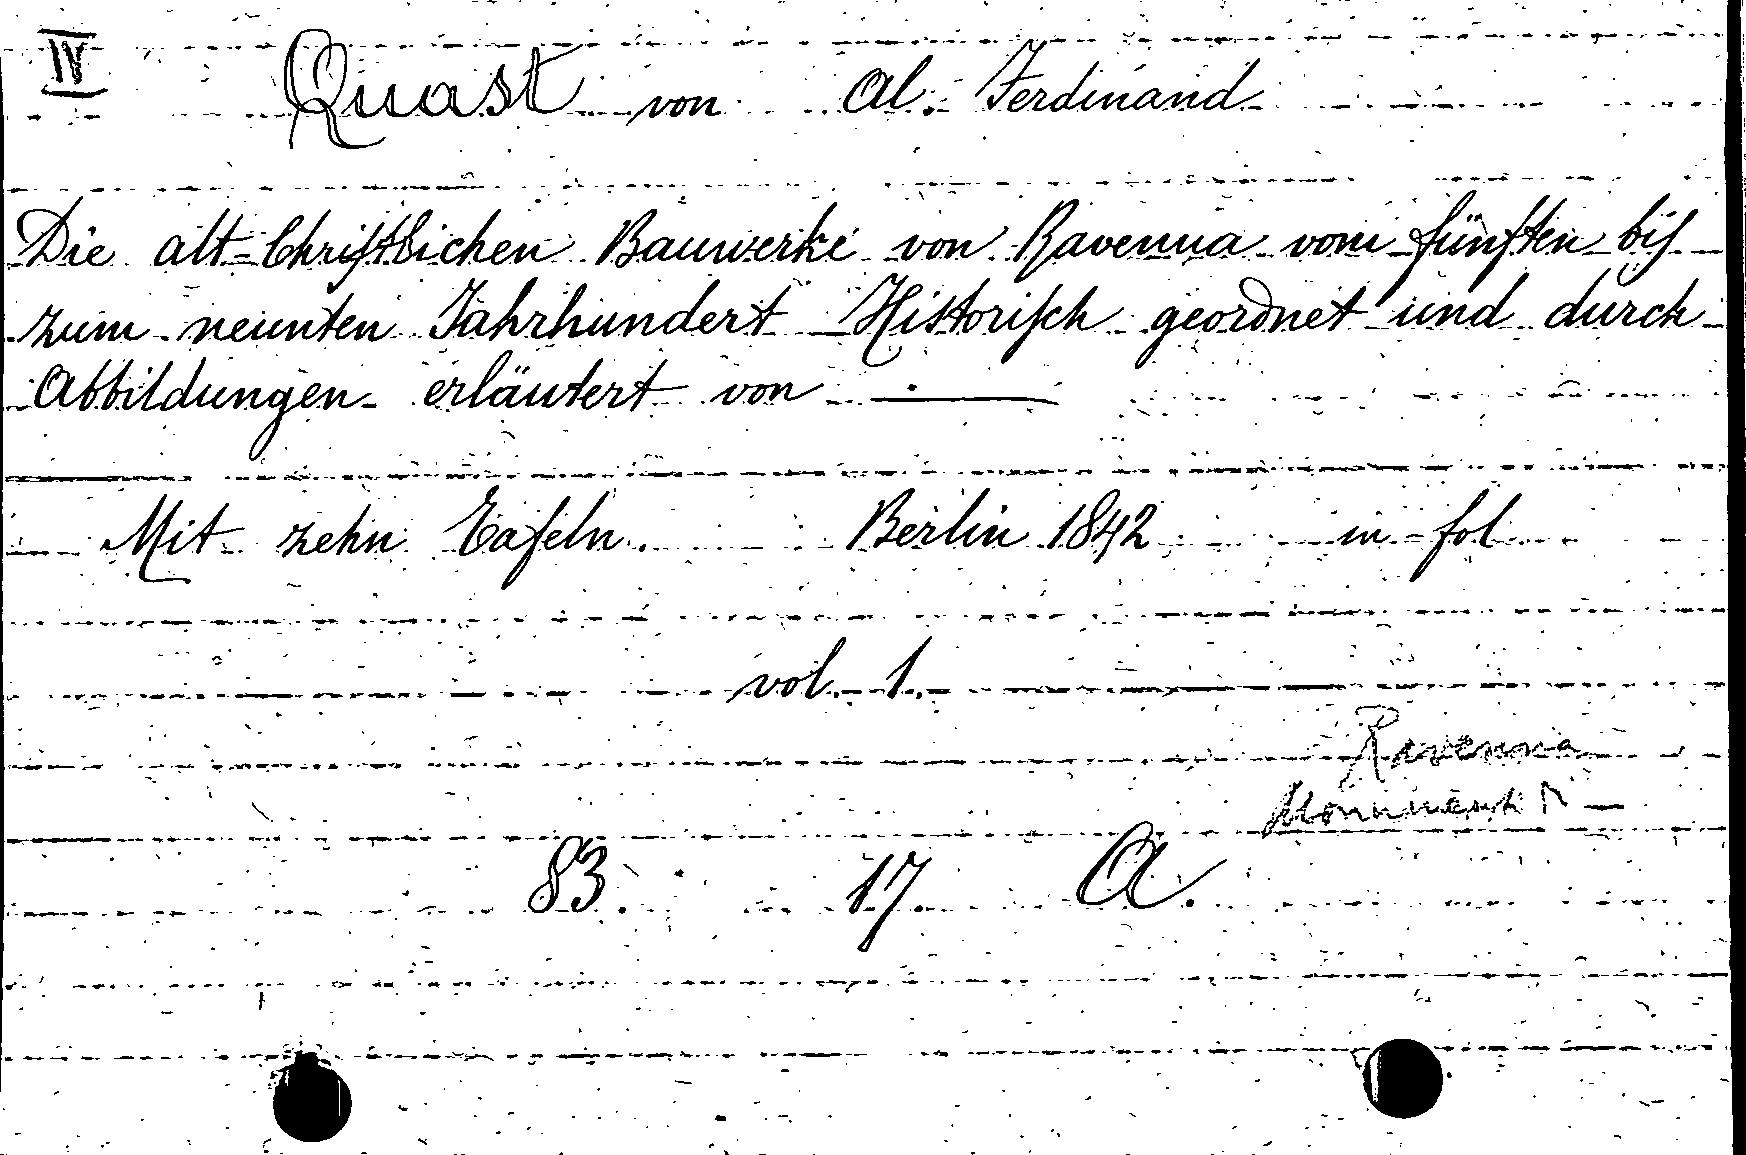 IV
Quast von Al. Ferdinand
Die alt-Chriſtlichen Bauwerke von Ravenna vom fünften biſ
zum neunten Jahrhundert Historiſch geordnet und durch
Abbildungen erläutert von ———
Mit zehn Tafeln. Berlin 1842 in fol
vol. 1.
Ravenna
83. 17. A.